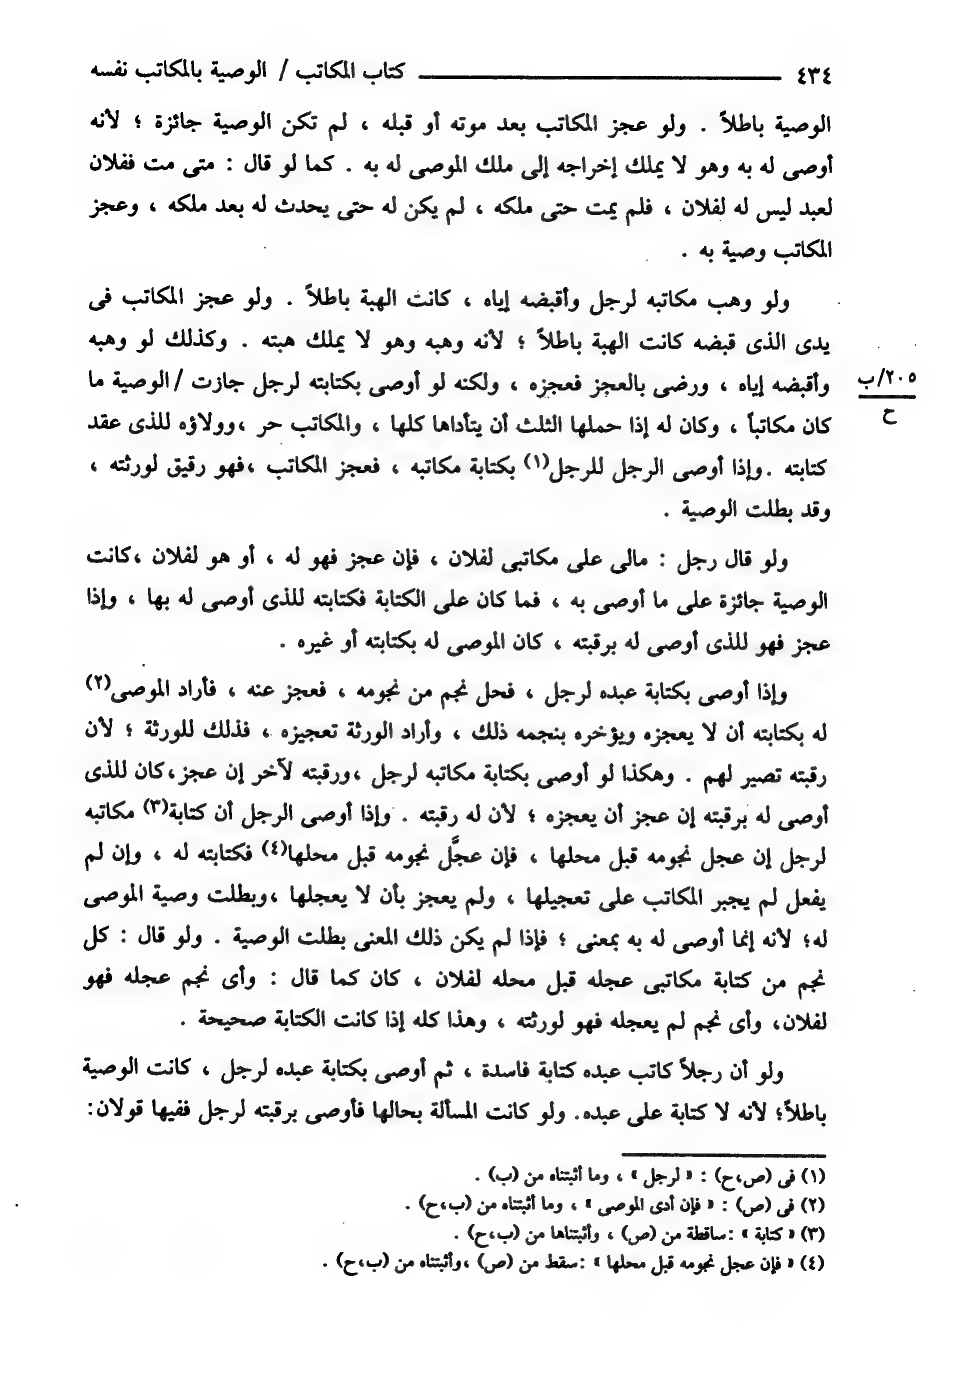 ٤٣٤ ــــــــــــــــــــــــــــــــ كتاب المكاتب / الوصية بالمكاتب نفسه
الوصية باطلاً . ولو عجز المكاتب بعد موته أو قبله ، لم تكن الوصية جائزة ؛ لأنه
أوصى له به وهو لا يملك إخراجه إلى ملك الموصى له به . كما لو قال : متى مت ففلان
لعبد ليس له لفلان ، فلم يمت حتى ملكه ، لم يكن له حتى يحدث له بعد ملكه ، وعجز
المكاتب وصية به .
ولو وهب مكاتبه لرجل وأقبضه إياه ، كانت الهبة باطلاً . ولو عجز المكاتب فى
يدى الذى قبضه كانت الهبة باطلاً ؛ لأنه وهبه وهو لا يملك هبته . وكذلك لو وهبه
وأقبضه إياه ، ورضى بالعجز فعجزه ، ولكنه لو أوصى بكتابته لرجل جازت / الوصية ما
٢٠٥/ب
ح
كان مكاتباً ، وكان له إذا حملها الثلث أن يتأداها كلها ، والمكاتب حر ، وولاؤه للذى عقد
كتابته . وإذا أوصى الرجل للرجل(١) بكتابة مكاتبه ، فعجز المكاتب ، فهو رقيق لورثته ،
وقد بطلت الوصية .
ولو قال رجل : مالى على مكاتبى لفلان ، فإن عجز فهو له ، أو هو لفلان ، كانت
الوصية جائزة على ما أوصى به ، فما كان على الكتابة فكتابته للذى أوصى له بها ، وإذا
عجز فهو للذى أوصى له برقبته ، كان الموصى له بكتابته أو غيره .
وإذا أوصى بكتابة عبده لرجل ، فحل نجم من نجومه ، فعجز عنه ، فأراد الموصى(٢)
له بكتابته أن لا يعجزه ويؤخره بنجمه ذلك ، وأراد الورثة تعجيزه ، فذلك للورثة ؛ لأن
رقبته تصير لهم . وهكذا لو أوصى بكتابة مكاتبه لرجل ، ورقبته لآخر إن عجز، كان للذى
أوصى له برقبته إن عجز أن يعجزه ؛ لأن له رقبته . وإذا أوصى الرجل أن كتابة(٣) مكاتبه
لرجل إن عجل نجومه قبل محلها ، فإن عجَّل نجومه قبل محلها(٤) فكتابته له ، وإن لم
يفعل لم يجبر المكاتب على تعجيلها ، ولم يعجز بأن لا يعجلها ، وبطلت وصية الموصى
له؛ لأنه إنما أوصى له به بمعنى ؛ فإذا لم يكن ذلك المعنى بطلت الوصية . ولو قال : كل
نجم من كتابة مكاتبى عجله قبل محله لفلان ، كان كما قال : وأى نجم عجله فهو
لفلان، وأى نجم لم يعجله فهو لورثته ، وهذا كله إذا كانت الكتابة صحيحة .
ولو أن رجلاً كاتب عبده كتابة فاسدة ، ثم أوصى بكتابة عبده لرجل ، كانت الوصية
باطلاً؛ لأنه لا كتابة على عبده. ولو كانت المسألة بحالها فأوصى برقبته لرجل ففيها قولان:
(١) فى (ص،ح) : « لرجل » ، وما أثبتناه من (ب) .
(٢) فى (ص) : « فإن أدى الموصى » ، وما أثبتناه من (ب،ح) .
(٣) « كتابة » :ساقطة من (ص) ، وأثبتناها من (ب،ح) .
(٤) « فإن عجل نجومه قبل محلها » :سقط من (ص) ،وأثبتناه من (ب،ح) .